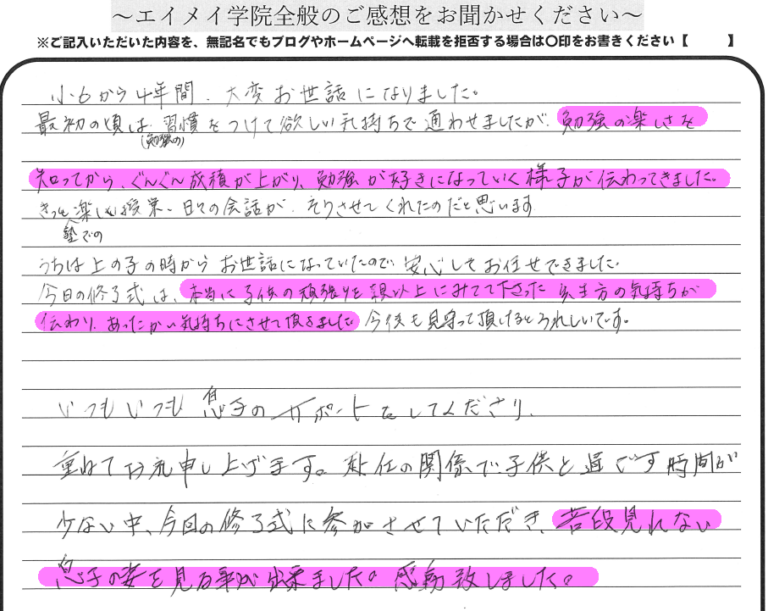 ～エイメイ学院全般のご感想をお聞かせください～
※ご記入いただいた内容を、無記名でもブログやホームページへ転載を拒否する場合は〇印をお書きください【　　】
小6から4年間、大変お世話になりました。
最初の頃は、習慣をつけて欲しい気持ちで通わせましたが、勉強の楽しさを
(勉強の)
知ってから、ぐんぐん成績が上がり、勉強が好きになっていく様子が伝わってきました。
きっと楽しい授業、日々の会話が、そうさせてくれたのだと思います
塾での
うちは上の子の時からお世話になっていたので、安心してお任せできました。
今日の修了式は、本当に子供の頑張りを親以上にみてて下さった先生方の気持ちが
伝わり、あったかい気持ちにさせて頂きました 今後も見守って頂けるとうれしいです。
いつもいつも息子のサポートをしてくださり、
重ねてお礼申し上げます。赴任の関係で子供と過ごす時間が
少ない中、今回の修了式に参加させていただき、普段見れない
息子の姿を見る事が出来ました。感動致しました。